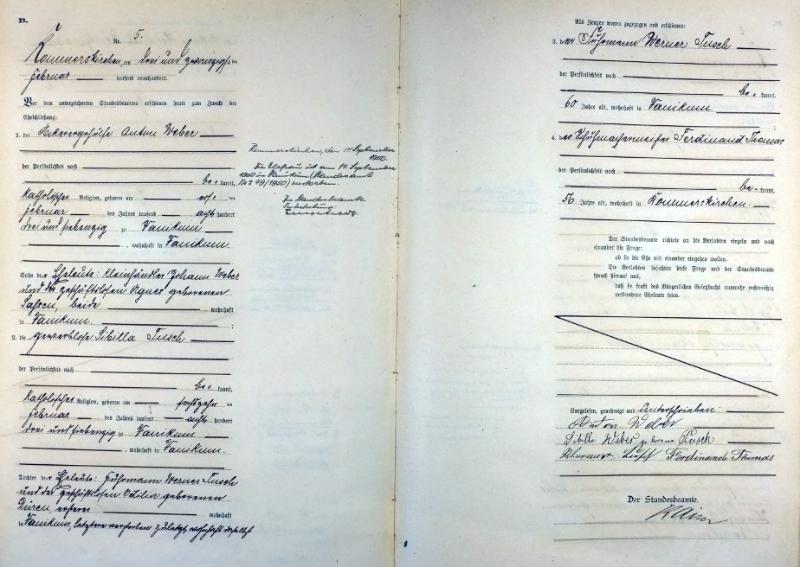 B.
Nr. 5.
Rommerskirchen, am drei und zwanzigsten
Februar tausend neunhundert.
Vor dem unterzeichneten Standesbeamten erschienen heute zum Zwecke der
Eheschließung:
1. der Ackergehülfe Anton Weber
der Persönlichkeit nach
be kannt,
katholischer Religion, geboren am
Februar des Jahres tausend acht hundert
drei und siebenzig zu Vanikum
, wohnhaft in Vanikum.
Sohn der Eheleute: Kleinhändler Johann Weber
und der geschäftslosen Agnes geborenen
beide wohnhaft
in Vanikum.
2. die gewerblose Sibilla Tusch
der Persönlichkeit nach
be kannt,
katholischer Religion, geboren am
Februar des Jahres tausend acht hundert
drei und siebenzig zu Vanikum
, wohnhaft in Vanikum.
Tochter der Eheleute: Fuhrmann Werner Tusch
und der geschäftslosen geborenen
ersterer wohnhaft
in Vanikum, letztere verstorben zuletzt wohnhaft daselbst
Rommerskirchen, den September
1950.
Die Ehefrau ist am September
1950 in (Standesamt
49/1950) verstorben.
Der Standesbeamte
In Vertretung
Als Zeugen waren zugezogen und erschienen:
3. der Fuhrmann Werner Tusch
der Persönlichkeit nach
be kannt,
60 Jahre alt, wohnhaft in Vanikum
4. der Schuhmachermeister Ferdinand Thomas
der Persönlichkeit nach
be kannt,
56 Jahre alt, wohnhaft in Rommerskirchen.
Der Standesbeamte richtete an die Verlobten einzeln und nach
einander die Frage:
ob sie die Ehe mit einander eingehen wollen.
Die Verlobten bejahten diese Frage und der Standesbeamte
sprach hierauf aus,
daß sie kraft des Bürgerlichen Gesetzbuchs nunmehr rechtmäßig
verbundene Eheleute seien.
Vorgelesen, genehmigt und unterschrieben:
Anton Weber
Sibilla Weber geborene Tusch
Werner Tusch Ferdinand Thomas
Der Standesbeamte.